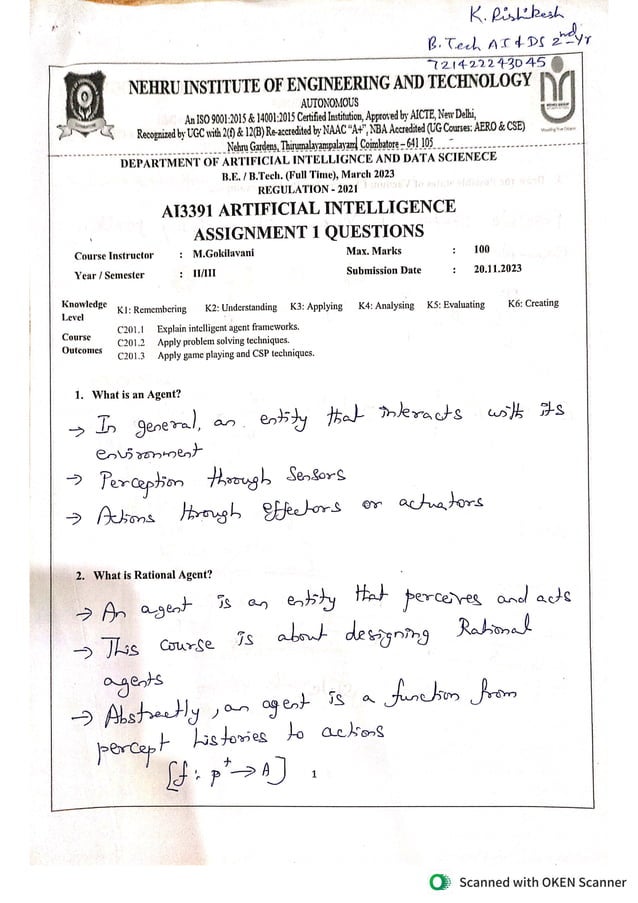 K. Rishikesh
B. Tech AI & DS 2nd Yr
721422243045
NEHRU INSTITUTE OF ENGINEERING AND TECHNOLOGY
AUTONOMOUS
An ISO 9001:2015 & 14001:2015 Certified Institution, Approved by AICTE, New Delhi,
Recognized by UGC with 2(f) & 12(B) Re-accredited by NAAC "A+", NBA Accredited (UG Courses: AERO & CSE)
Nehru Gardens, Thirumalayampalayam, Coimbatore – 641 105
DEPARTMENT OF ARTIFICIAL INTELLIGNCE AND DATA SCIENECE
B.E. / B.Tech. (Full Time), March 2023
REGULATION - 2021
AI3391 ARTIFICIAL INTELLIGENCE
ASSIGNMENT 1 QUESTIONS
Course Instructor : M.Gokilavani Max. Marks : 100
Year / Semester : II/III Submission Date : 20.11.2023
Knowledge Level K1: Remembering K2: Understanding K3: Applying K4: Analysing K5: Evaluating K6: Creating
Course Outcomes C201.1 Explain intelligent agent frameworks.
C201.2 Apply problem solving techniques.
C201.3 Apply game playing and CSP techniques.
1. What is an Agent?
→ In general, an entity that interacts with its
environment
→ Perception through Sensors
→ Actions through effectors or actuators
2. What is Rational Agent?
→ An agent is an entity that perceives and acts
→ This course is about designing Rational
agents
→ Abstrectly, an agent is a function from
percept histories to actions
[f: p+ → A]
1
Scanned with OKEN Scanner